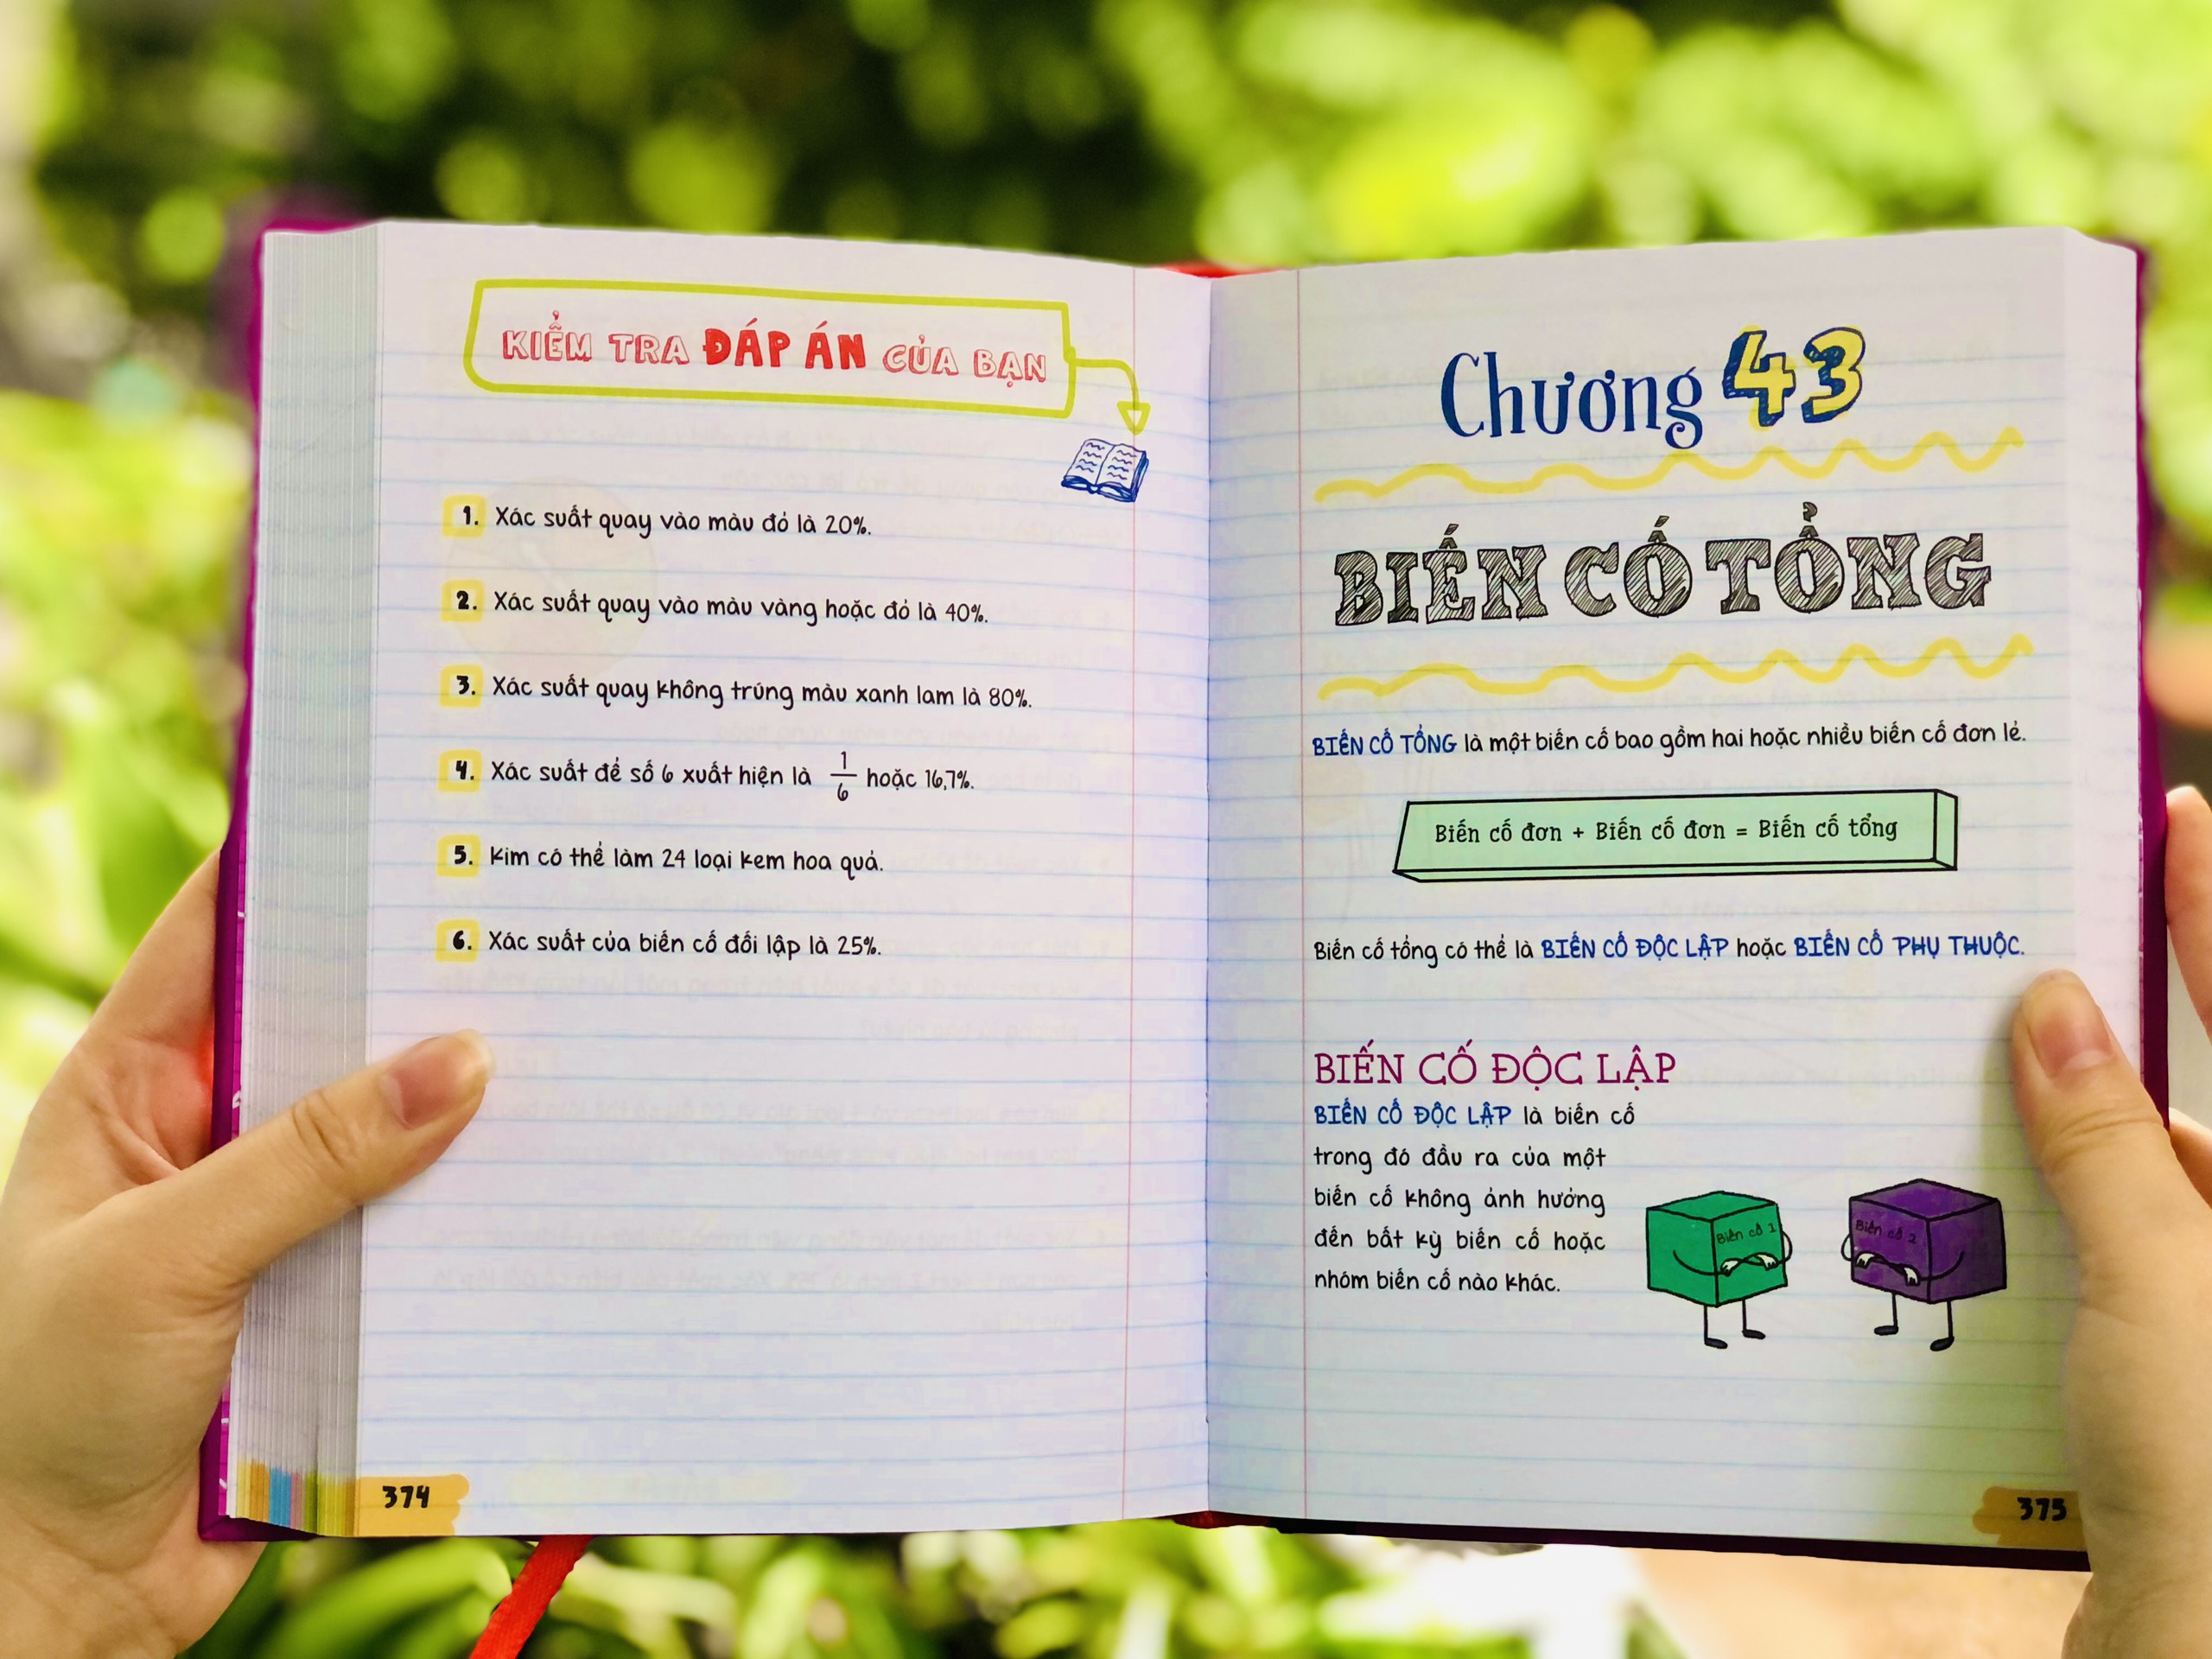 KIỂM TRA ĐÁP ÁN CỦA BẠN
1. Xác suất quay vào màu đỏ là 20%.
2. Xác suất quay vào màu vàng hoặc đỏ là 40%.
3. Xác suất quay không trúng màu xanh lam là 80%.
4. Xác suất để số 6 xuất hiện là 1/6 hoặc 16,7%.
5. Kim có thể làm 24 loại kem hoa quả.
6. Xác suất của biến cố đối lập là 25%.
374
Chương 43
BIẾN CỐ TỔNG
BIẾN CỐ TỔNG là một biến cố bao gồm hai hoặc nhiều biến cố đơn lẻ.
Biến cố đơn + Biến cố đơn = Biến cố tổng
Biến cố tổng có thể là BIẾN CỐ ĐỘC LẬP hoặc BIẾN CỐ PHỤ THUỘC.
BIẾN CỐ ĐỘC LẬP
BIẾN CỐ ĐỘC LẬP là biến cố
trong đó đầu ra của một
biến cố không ảnh hưởng
đến bất kỳ biến cố hoặc
nhóm biến cố nào khác.
Biến cố 1
Biến cố 2
375